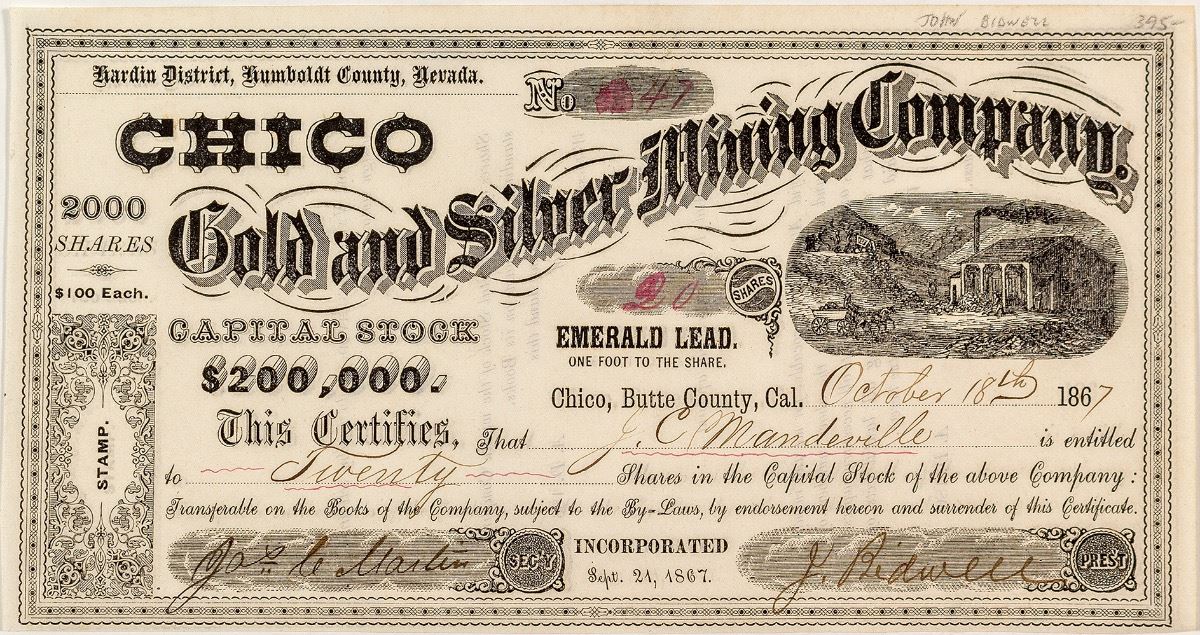 JOHN BIDWELL 395-
Hardin District, Humboldt County, Nevada.
No 47
CHICO
Gold and Silver Mining Company.
2000
SHARES
$100 Each.
20 SHARES
CAPITAL STOCK
$200,000.
EMERALD LEAD.
ONE FOOT TO THE SHARE.
Chico, Butte County, Cal. October 18th 1867
This Certifies, That J. C. Mandeville is entitled
to Twenty Shares in the Capital Stock of the above Company:
Transferable on the Books of the Company, subject to the By-Laws, by endorsement hereon and surrender of this Certificate.
STAMP.
Jas. C. Martin SEC'Y
INCORPORATED
Sept. 21, 1867.
J. Bidwell PREST